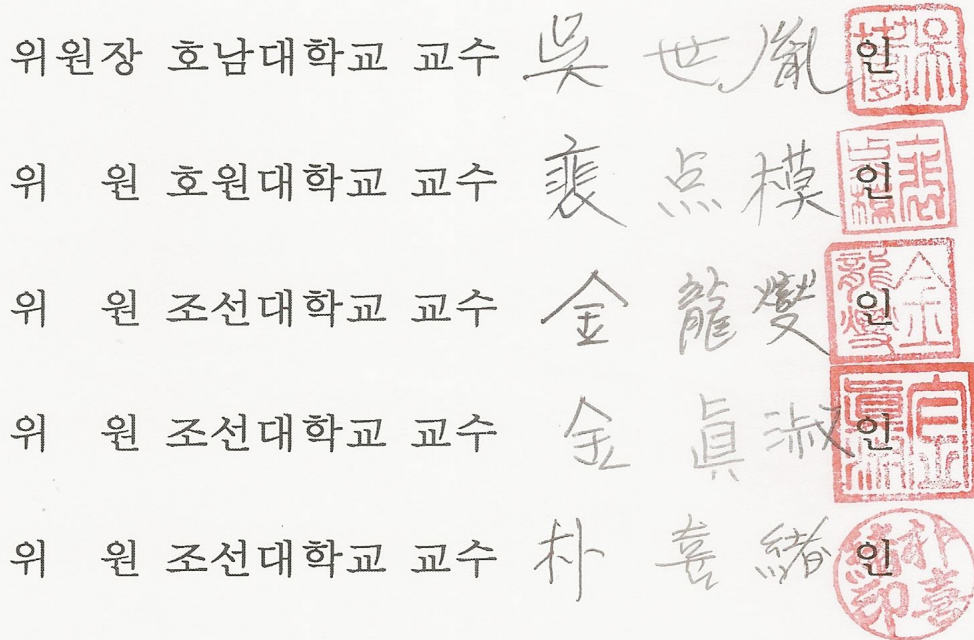 위원장 호남대학교 교수 吳世胤 인
위 원 호원대학교 교수 裵点模 인
위 원 조선대학교 교수 金龍燮 인
위 원 조선대학교 교수 金眞淑 인
위 원 조선대학교 교수 朴喜緖 인